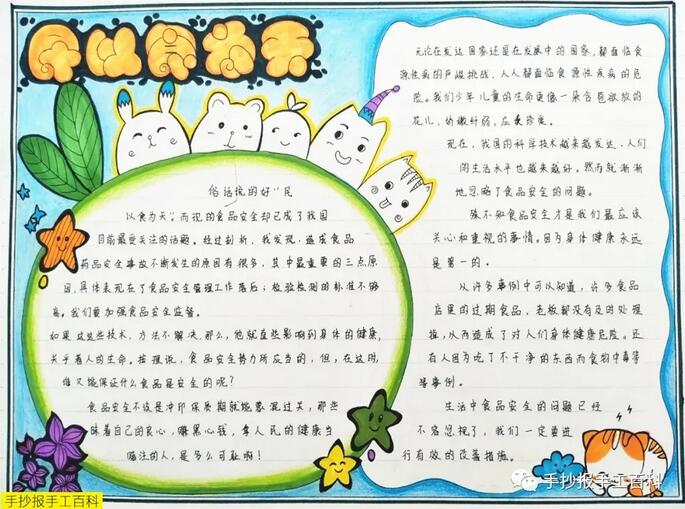 民以食为天
俗话说的好“民
以食为天”而现的食品安全却已成了我国
目前最受关注的话题。经过剖析，我发现，造成食品
药品安全事故不断发生的原因有很多，其中最重要的三点原
因，具体表现在了食品安全管理工作落后；检验检测的标准不够
高。我们要加强食品安全监督。
如果这些技术，方法不解决，那么，他就直些影响到身体的健康，
关乎着人的生命。按理说，食品安全势力所应当的，但，在这时，
谁又能保证什么食品是安全的呢？
食品安全不该是冲印保质期就能蒙混过关，那些
昧着自己的良心，赚黑心钱，拿人民的健康当
赌注的人，是多么可耻啊！
无论在发达国家还是在发展中的国家，都面临食
源性病的严峻挑战，人人都面临食源性疾病的危
险。我们少年儿童的生命更像一朵含苞欲放的
花儿，娇嫩纤弱，应更珍爱。
现在，我国的科学技术越来越发达，人们
的生活水平也越来越好。然而就渐渐
地忽略了食品安全的问题。
殊不知食品安全才是我们最应该
关心和重视的事情。因为身体健康永远
是第一的。
从许多事例中可以知道，许多食品
店里的过期食品，老板都没有及时处理
掉，从而造成了对人们身体健康危险。还
有人因为吃了不干净的东西而食物中毒等
等事例。
生活中食品安全的问题已经
不容忽视了，我们一定要进
行有效的改善措施。
手抄报手工百科
手抄报手工百科